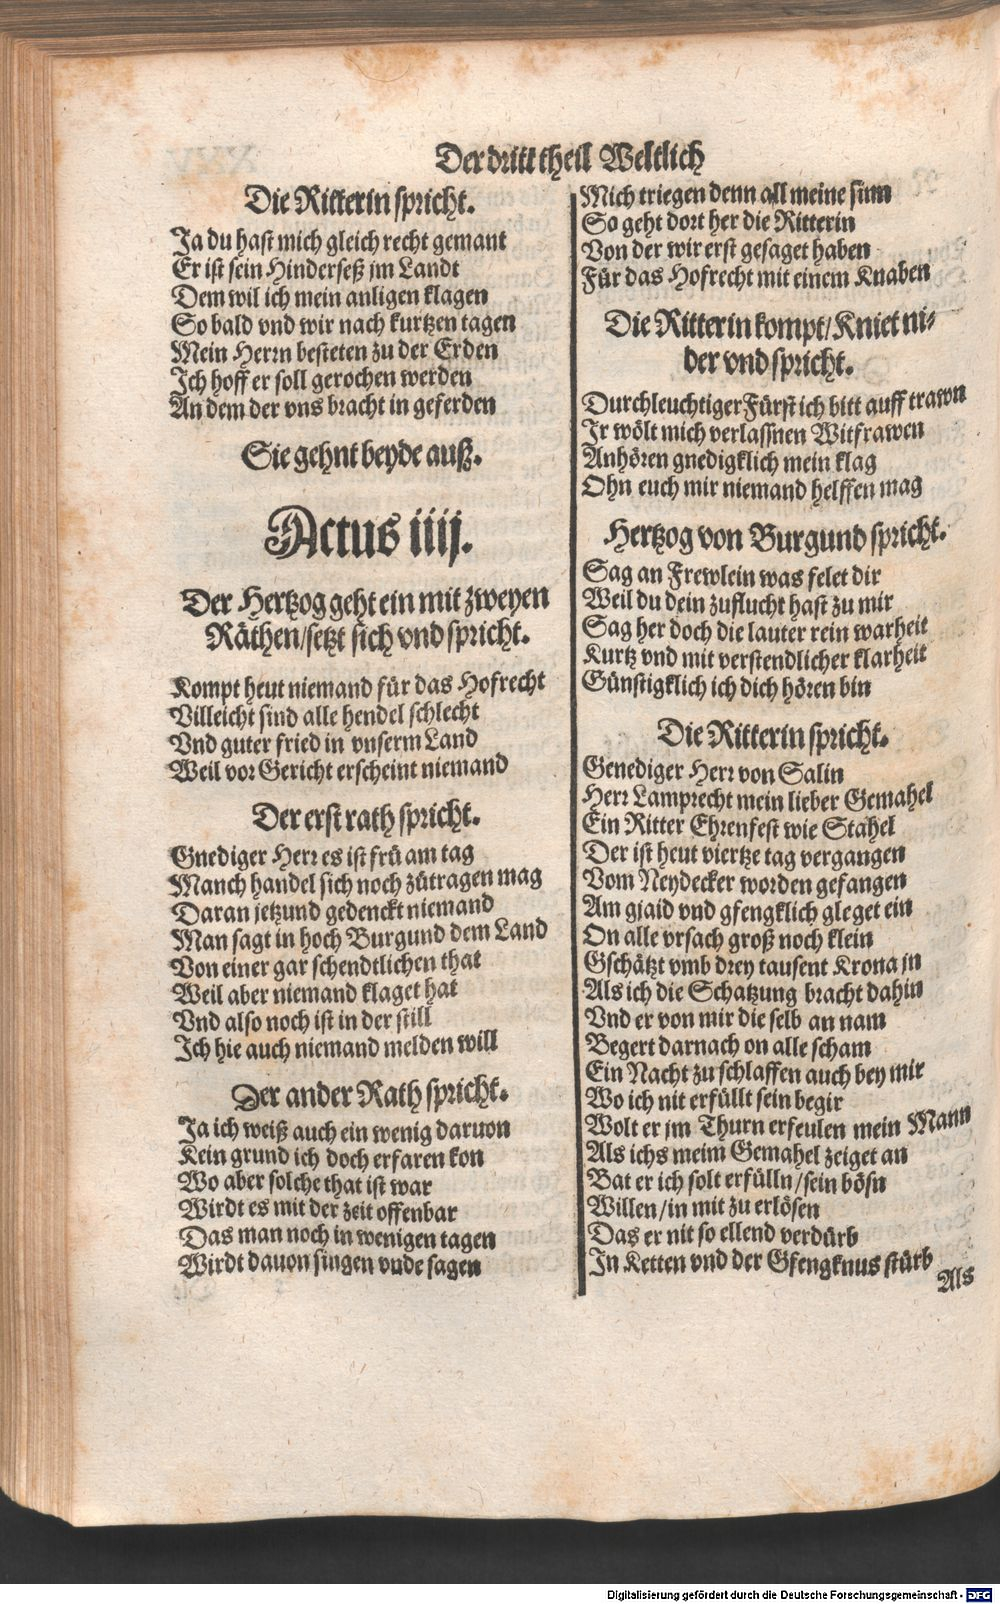 Der dritt theil Weltlich
Die Ritterin spricht.
Ja du hast mich gleich recht gemant
Er ist sein Hinderseß jm Landt
Dem wil ich mein anligen klagen
So bald vnd wir nach kurtzen tagen
Mein Herrn besteten zu der Erden
Ich hoff er soll gerochen werden
An dem der vns bracht in geferden
Sie gehnt beyde auß.
Actus iiij.
Der Hertzog geht ein mit zweyen
Räthen/setzt sich vnd spricht.
Kompt heut niemand für das Hofrecht
Villeicht sind alle hendel schlecht
Vnd guter fried in vnserm Land
Weil vor Gericht erscheint niemand
Der erst rath spricht.
Gnediger Herr es ist frü am tag
Manch handel sich noch zůtragen mag
Daran jetzund gedenckt niemand
Man sagt in hoch Burgund dem Land
Von einer gar schendtlichen that
Weil aber niemand klaget hat
Vnd also noch ist in der still
Ich hie auch niemand melden will
Der ander Rath spricht.
Ja ich weiß auch ein wenig daruon
Kein grund ich doch erfaren kon
Wo aber solche that ist war
Wirdt es mit der zeit offenbar
Das man noch in wenigen tagen
Wirdt dauon singen vnde sagen
Mich triegen denn all meine sinn
So geht dort her die Ritterin
Von der wir erst gesaget haben
Für das Hofrecht mit einem Knaben
Die Ritterin kompt/Kniet ni-
der vnd spricht.
Durchleuchtiger Fürst ich bitt auff trawn
Ir wölt mich verlassnen Witfrawen
Anhören gnedigklich mein klag
Ohn euch mir niemand helffen mag
Hertzog von Burgund spricht.
Sag an Frewlein was felet dir
Weil du dein zuflucht hast zu mir
Sag her doch die lauter rein warheit
Kurtz vnd mit verstendlicher klarheit
Günstigklich ich dich hören bin
Die Ritterin spricht.
Genediger Herr von Salin
Herr Lamprecht mein lieber Gemahel
Ein Ritter Ehrenfest wie Stahel
Der ist heut viertze tag vergangen
Vom Neydecker worden gefangen
Am gjaid vnd gfengklich gleget ein
On alle vrsach groß noch klein
Gschätzt vmb drey tausent Krona jn
Als ich die Schatzung bracht dahin
Vnd er von mir die selb an nam
Begert darnach on alle scham
Ein Nacht zu schlaffen auch bey mir
Wo ich nit erfüllt sein begir
Wolt er jm Thurn erfeulen mein Mann
Als ichs meim Gemahel zeiget an
Bat er ich solt erfülln/sein bösn
Willen/in mit zu erlösen
Das er nit so ellend verdürb
In Ketten vnd der Gfengknus stürb
Als
Digitalisierung gefördert durch die Deutsche Forschungsgemeinschaft - DFG